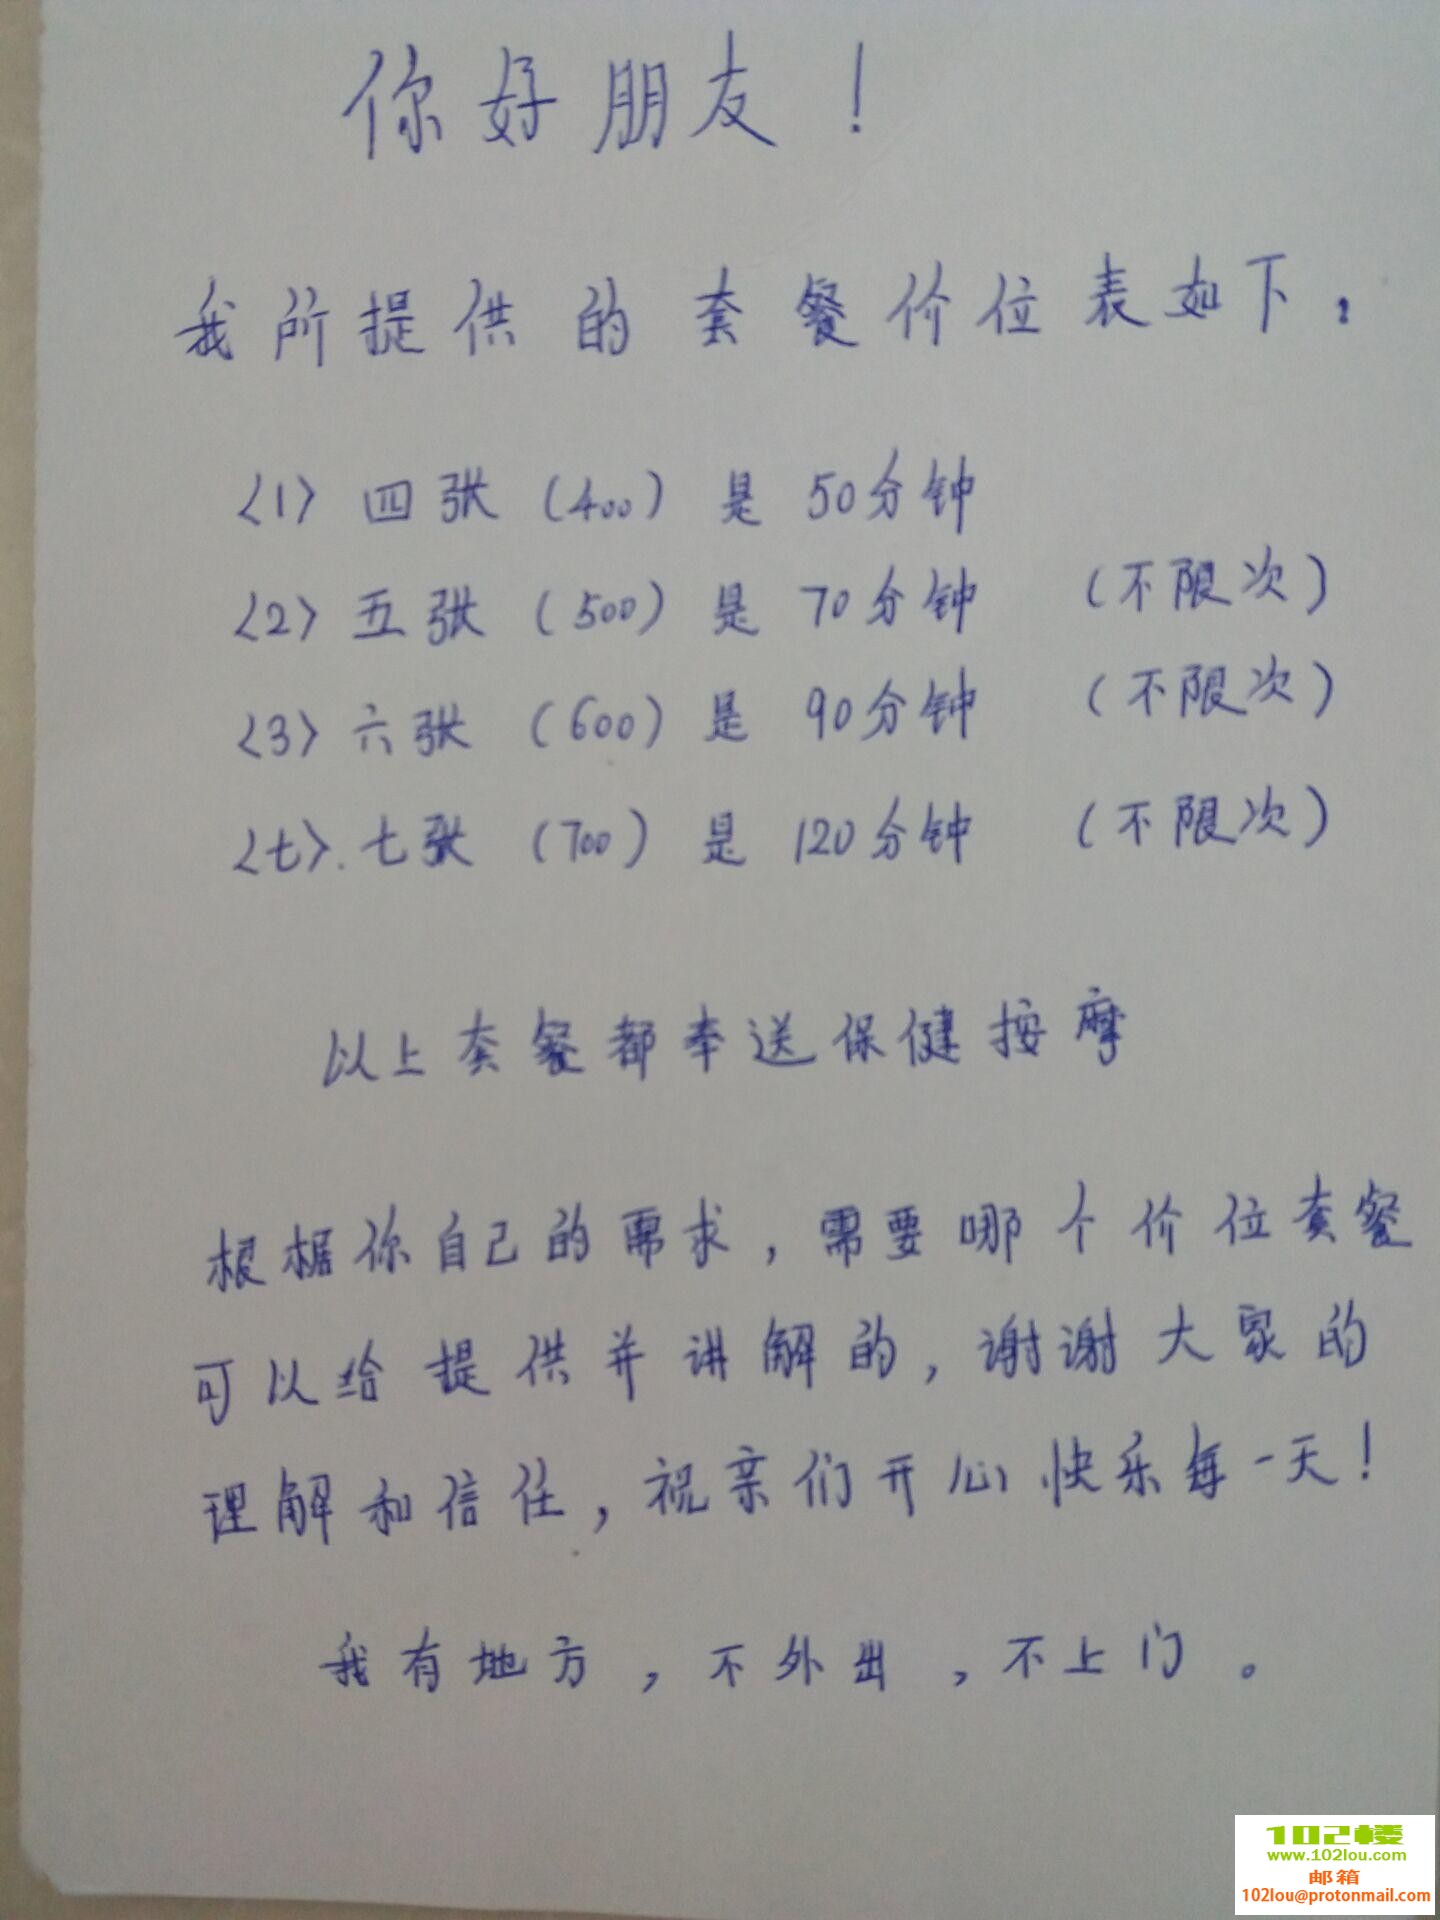 你好朋友！
我所提供的套餐价位表如下：
<1> 四张 (400) 是 50分钟
<2> 五张 (500) 是 70分钟 (不限次)
<3> 六张 (600) 是 90分钟 (不限次)
<七>. 七张 (700) 是 120分钟 (不限次)
以上套餐都奉送保健按摩
根据你自己的需求，需要哪个价位套餐
可以给提供并讲解的，谢谢大家的
理解和信任，祝亲们开心快乐每一天！
我有地方，不外出，不上门。
102楼
www.102lou.com
邮箱
102lou@protonmail.com